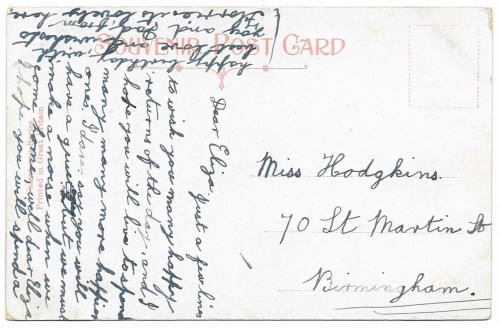 SOUVENIR POST CARD
Printed in Great Britain
Miss Hodgkins.
70 St Martin St
Birmingham.
Dear Eliza. Just a few lines
to wish you many happy
returns of the day, and I
hope you will live to spend
many many more happier
ones. I dare say you will
have a quiet but we must
make a noise when we
come home well dear Eliza
I hope you will spend a
happy birthday with
best love and
xxx and